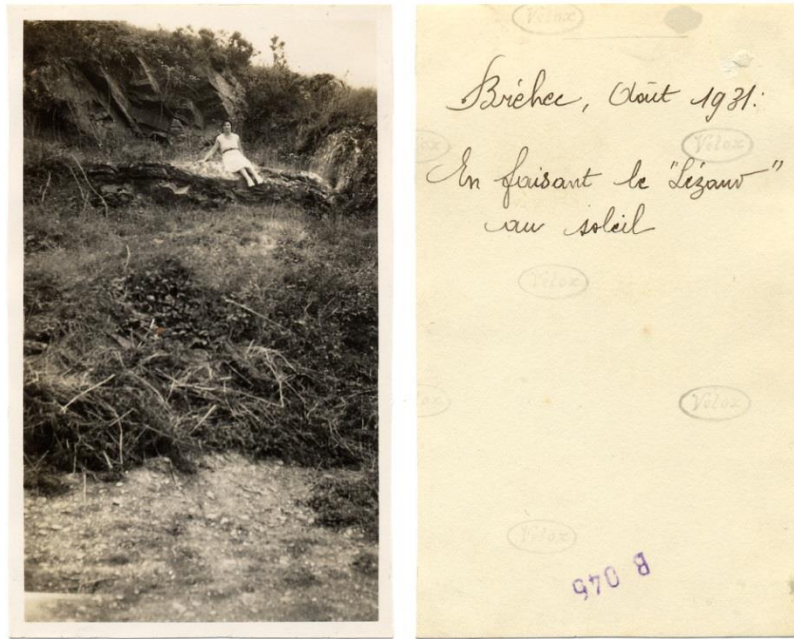 Velox
Bréhec, Août 1931:
Velox
En faisant le "Lézard"
au soleil
Velox
Velox
Velox
B 046